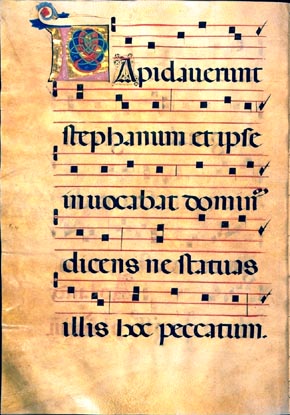 Lapidauerunt
stephanum et ipse
inuocabat domin̄
dicens ne statuas
illis hoc peccatum.